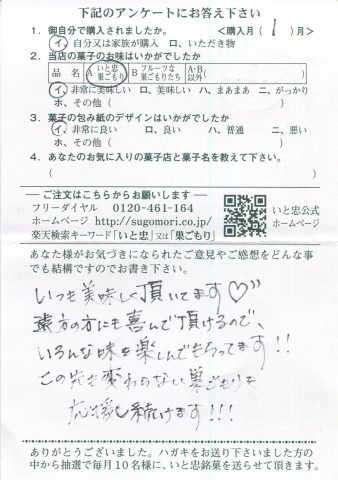 下記のアンケートにお答え下さい
1．御自分で購入されましたか。 <購入月( 1 )月>
イ、自分又は家族が購入 ロ、いただき物
2．当店の菓子のお味はいかがでしたか
品 名 A いと忠巣ごもり B フルーツな巣ごもりたち A・B以外( )
イ、非常に美味しい ロ、美味しい ハ、まあまあ ニ、がっかり
ホ、その他( )
3．菓子の包み紙のデザインはいかがでしたか
イ、非常に良い ロ、良い ハ、普通 ニ、悪い
ホ、その他( )
4．あなたのお気に入りの菓子店と菓子名を教えて下さい。
( )
ご注文はこちらからお願いします
フリーダイヤル 0120-461-164
ホームページ http://sugomori.co.jp/
楽天検索キーワード「いと忠」又は「巣ごもり」
いと忠公式
ホームページ
あなた様がお気づきになられたご意見やご感想をどんな事
でも結構ですのでお書き下さい。
いつも美味しく頂いてます♡"
遠方の方にも喜んで頂けるので、
いろんな味を楽しんでもらってます!!
この先も変わらない巣ごもりを
応援し続けます!!!
ありがとうございました。ハガキをお送り下さいました方の
中から抽選で毎月10名様に、いと忠銘菓を送らせて頂きます。